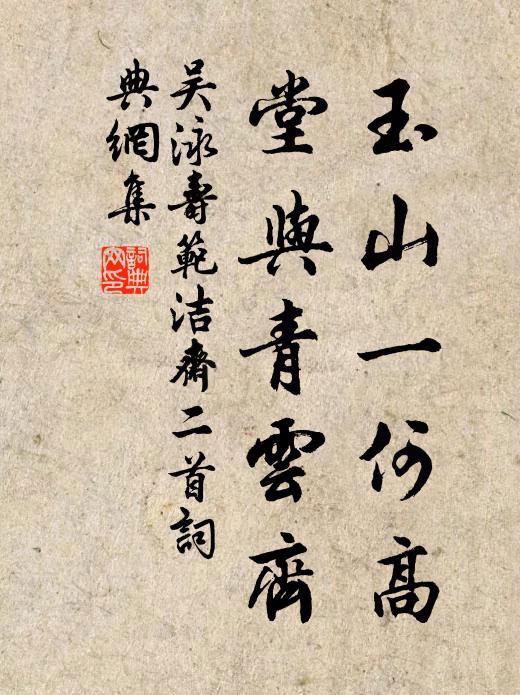 玉山一何高
堂與青雲齊
吴泳壽範洁齋二首詞
典網集
詞典
网印